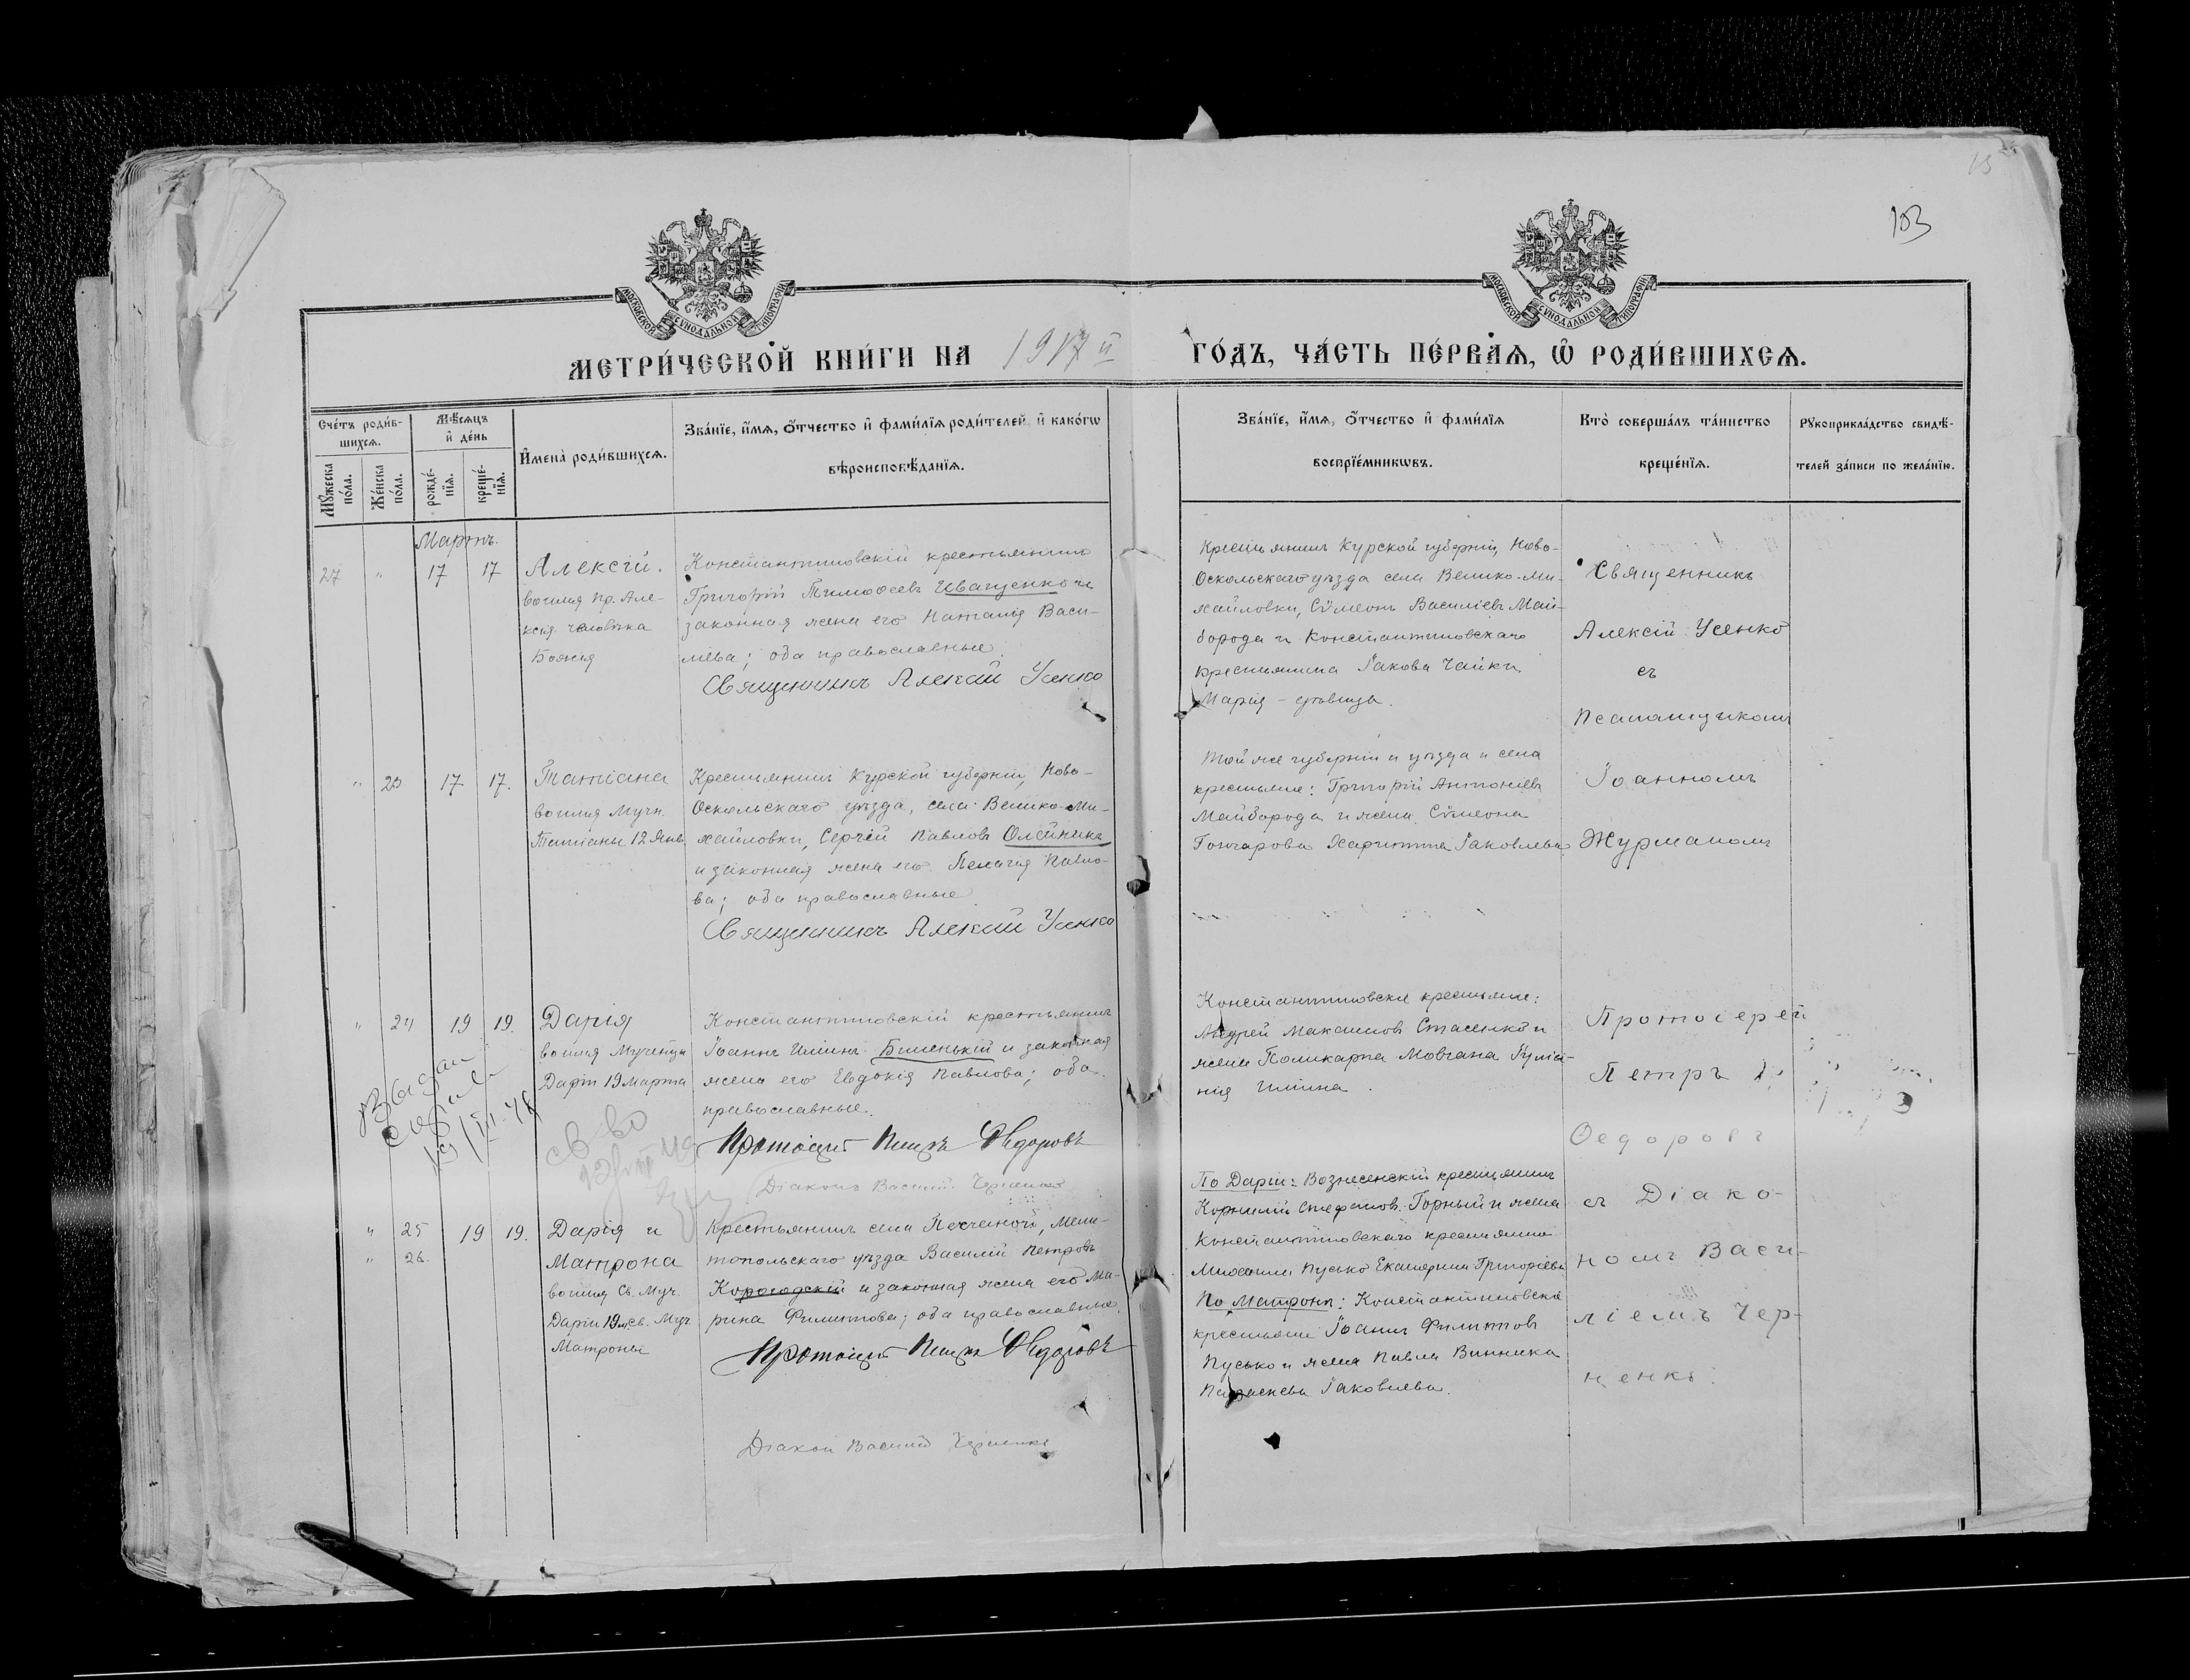 103
МОСКОВСКОЙ СѴНОДАЛЬНОЙ ТИПОГРАФІИ
МОСКОВСКОЙ СѴНОДАЛЬНОЙ ТИПОГРАФІИ
МЕТРИ́ЧЕСКОЙ КНИ́ГИ НА 1917й ГО́ДЪ, ЧА́СТЬ ПЕ́РВАѦ, Ѽ РОДИ́ВШИХСѦ.
Сче́тъ роди́в-
шихсѧ.
Мꙋжеска по́ла.
Же́нска по́ла.
Мѣ́сѧцъ
и҆ де́нь
рожде́-
нїѧ.
креще́-
нїѧ.
И҆мена̀ роди́вшихсѧ.
Зва́нїе, и҆́мѧ, ѻ҆́тчество и҆ фами́лїѧ роди́телей, и҆ како́гѡ
вѣроисповѣ́данїѧ.
Зва́нїе, и҆́мѧ, ѻ҆́тчество и҆ фами́лїѧ
воспрїе́мникѡвъ.
Кто̀ соверша́лъ та́инство
креще́нїѧ.
Рꙋкоприкла́дство свидѣ́-
телей за́писи по жела́нїю.
Мартъ.
27 " 17 17
Алексій.
во имя пр. Але-
ксія человѣка
Божія
Константиновскій крестьянинъ
Григорій Тимоѳеевъ Иващенко и
законная жена его Наталія Васи-
ліева; оба православные.
Священникъ Алексій Усенко
Крестьянинъ Курской губерніи, Ново-
Оскольскаго уѣзда села Велико-Ми-
хайловки, Сѵмеонъ Василіевъ Май-
борода и Константиновскаго
крестьянина Іакова Чайки
Марія - дѣвица.
Священникъ
Алексій Усенко
съ
Псаломщикомъ
Іоанномъ
Журманомъ
" 23 17 17.
Татіана
во имя Муч.
Татіаны 12 Янв.
Крестьянинъ Курской губерніи, Ново-
Оскольскаго уѣзда, села Велико-Ми-
хайловки, Сергій Павловъ Олейника
и законная жена его Пелагія Павло-
ва; оба православные
Священникъ Алексій Усенко
Той же губерніи и уѣзда и села
крестьяне: Григорій Антоніевъ
Майборода и жена Сѵмеона
Гончарова Харитина Іаковлева
" 24 19 19.
Дарія
во имя Мученицы
Даріи 19 Марта
Константиновскій крестьянинъ
Іоаннъ Иліинъ и законная
жена его Евдокія Павлова; оба
православные.
Протоіерей Петръ Ѳедоровъ
Діаконъ Василій Черненко
Константиновскіе крестьяне:
Андрей Максимовъ Стасенко и
жена Поликарпа Мовчана Іуліа-
нія Иліина.
Протоіерей
Петръ
Ѳедоровъ
съ Діако-
номъ Васи-
ліемъ Чер-
ненко.
" 25 19 19.
" 26.
Дарія и
Матрона
во имя Св. Муч.
Даріи 19 и св. Муч.
Матроны
Крестьянинъ села Песчаной, Мели-
топольскаго уѣзда Василій Петровъ
Корогодскій и законная жена его Ма-
рина Филиппова; оба православные.
Протоіерей Петръ Ѳедоровъ
Діаконъ Василій Черненко
По Даріи: Вознесенскій крестьянинъ
Корнилій Стефановъ Горный и жена
Константиновскаго крестьянина
Пусько Екатерина Григоріева
По Матронѣ: Константиновскіе
крестьяне Іоаннъ Филипповъ
Пусько и жена Павла Винника
Параскева Іаковлева.